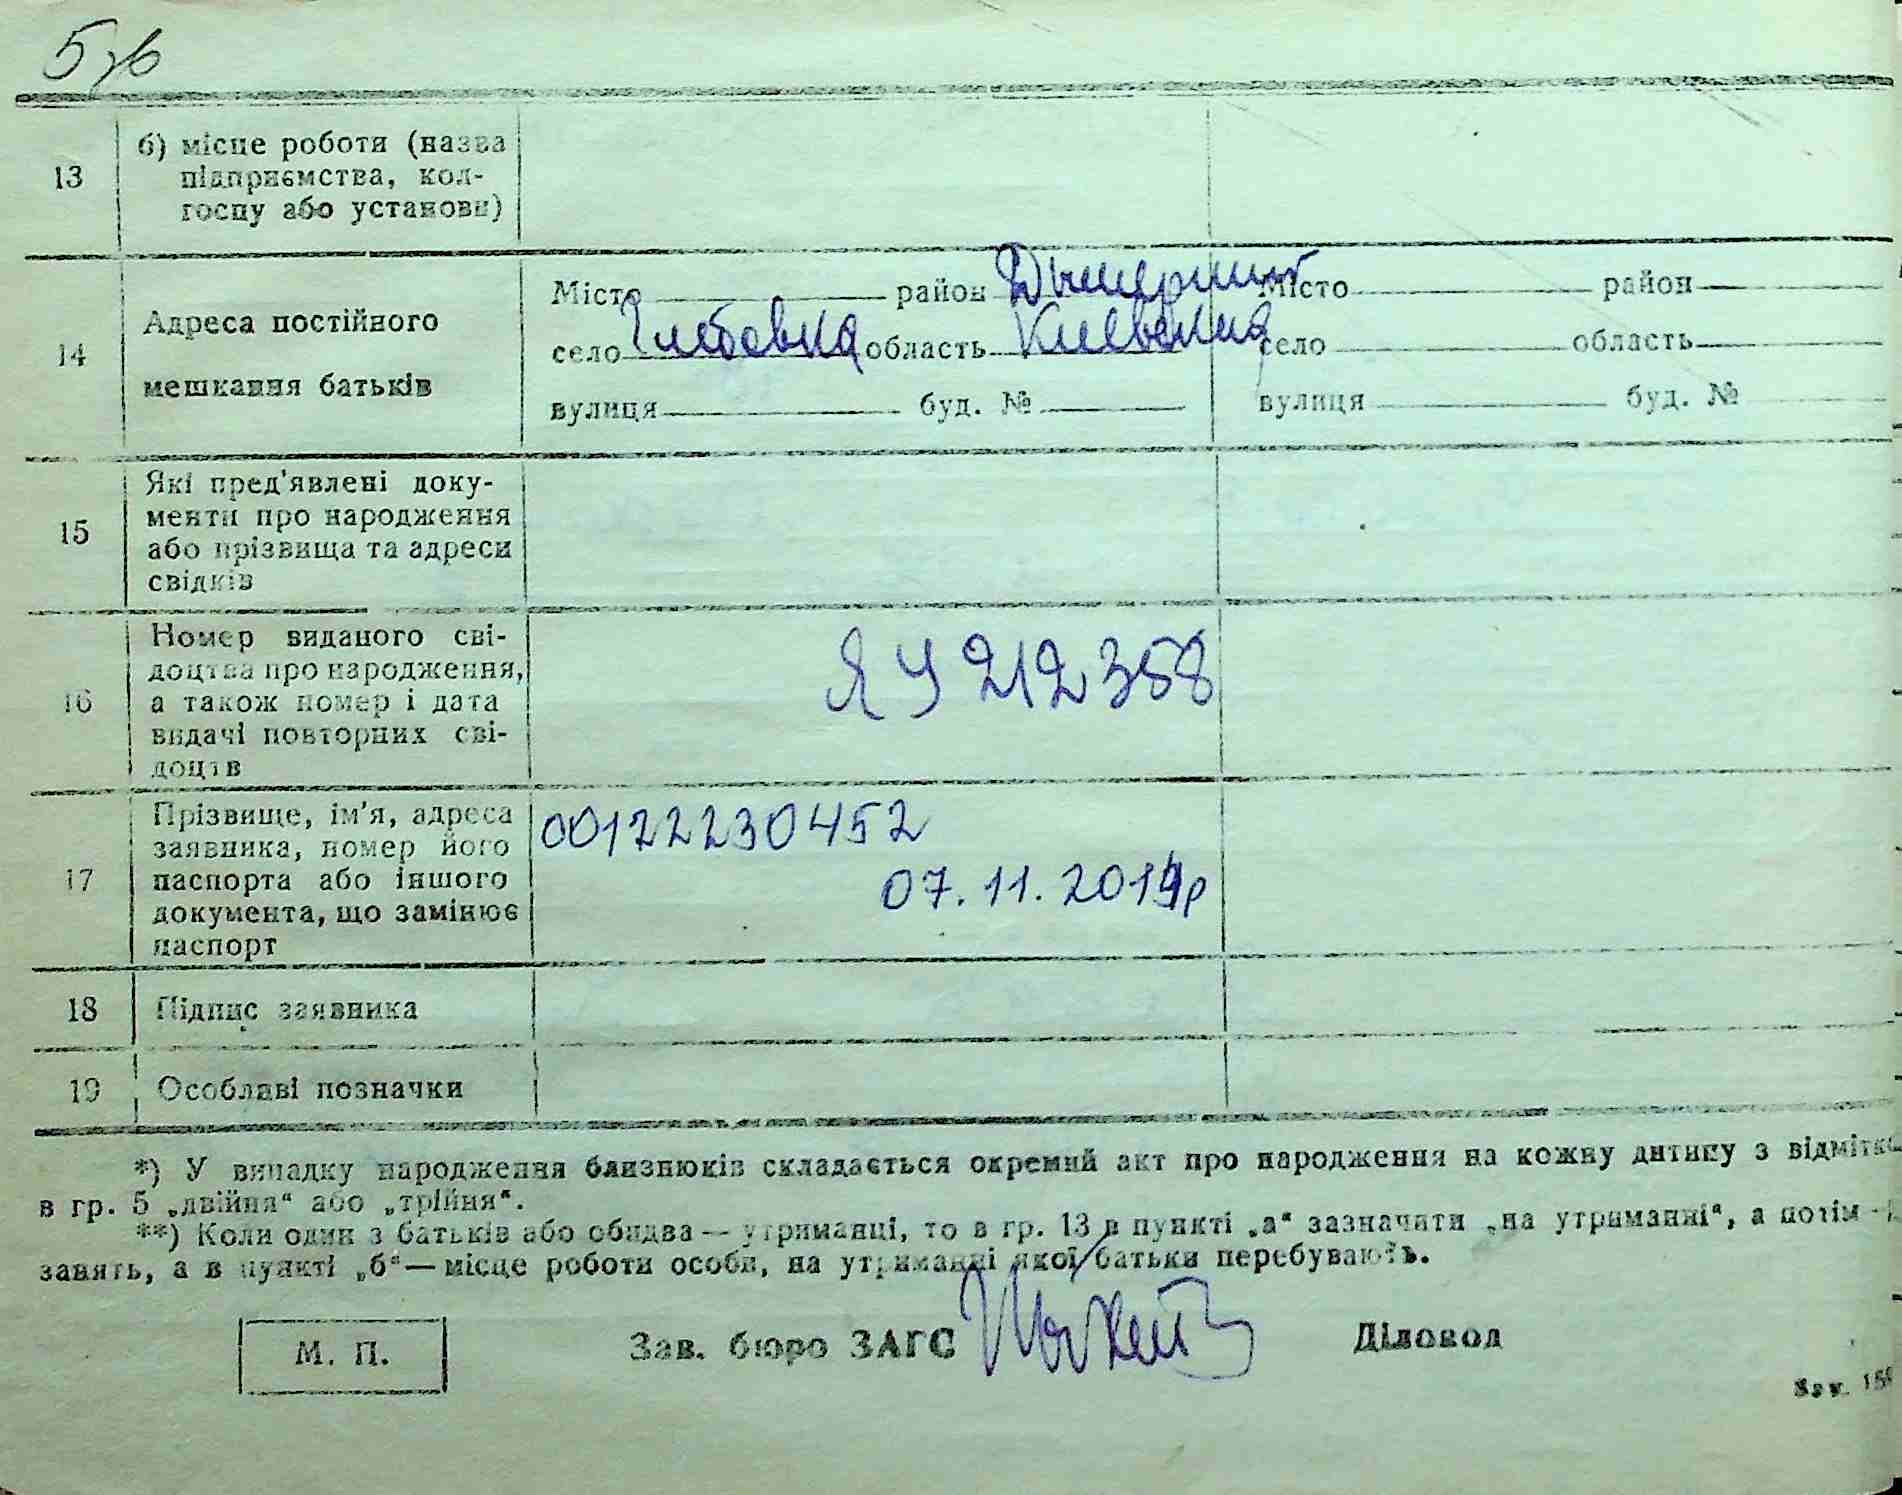 13
б) місце роботи (назва
підприємства, кол-
госпу або установи)
14
Адреса постійного
мешкання батьків
Місто район Дымерский
село Глебовка область Киевская
вулиця буд. №
Місто район
село область
вулиця буд. №
15
Які пред'явлені доку-
менти про народження
або прізвища та адреси
свідків
16
Номер виданого сві-
доцтва про народження,
а також номер і дата
видачі повторних сві-
доцтв
ЯУ 212358
17
Прізвище, ім'я, адреса
заявника, номер його
паспорта або іншого
документа, що замінює
паспорт
00122230452
07.11.2014р
18
Підпис заявника
19
Особливі позначки
*) У випадку народження близнюків складається окремий акт про народження на кожну дитину з відмітко
в гр. 5 „двійня“ або „трійня“.
**) Коли один з батьків або обидва — утриманці, то в гр. 13 в пункті „а“ зазначити „на утриманні“, а потім
занять, а в пункті „б“ — місце роботи особи, на утриманні якої батьки перебувають.
М. П.
Зав. бюро ЗАГС
Діловод